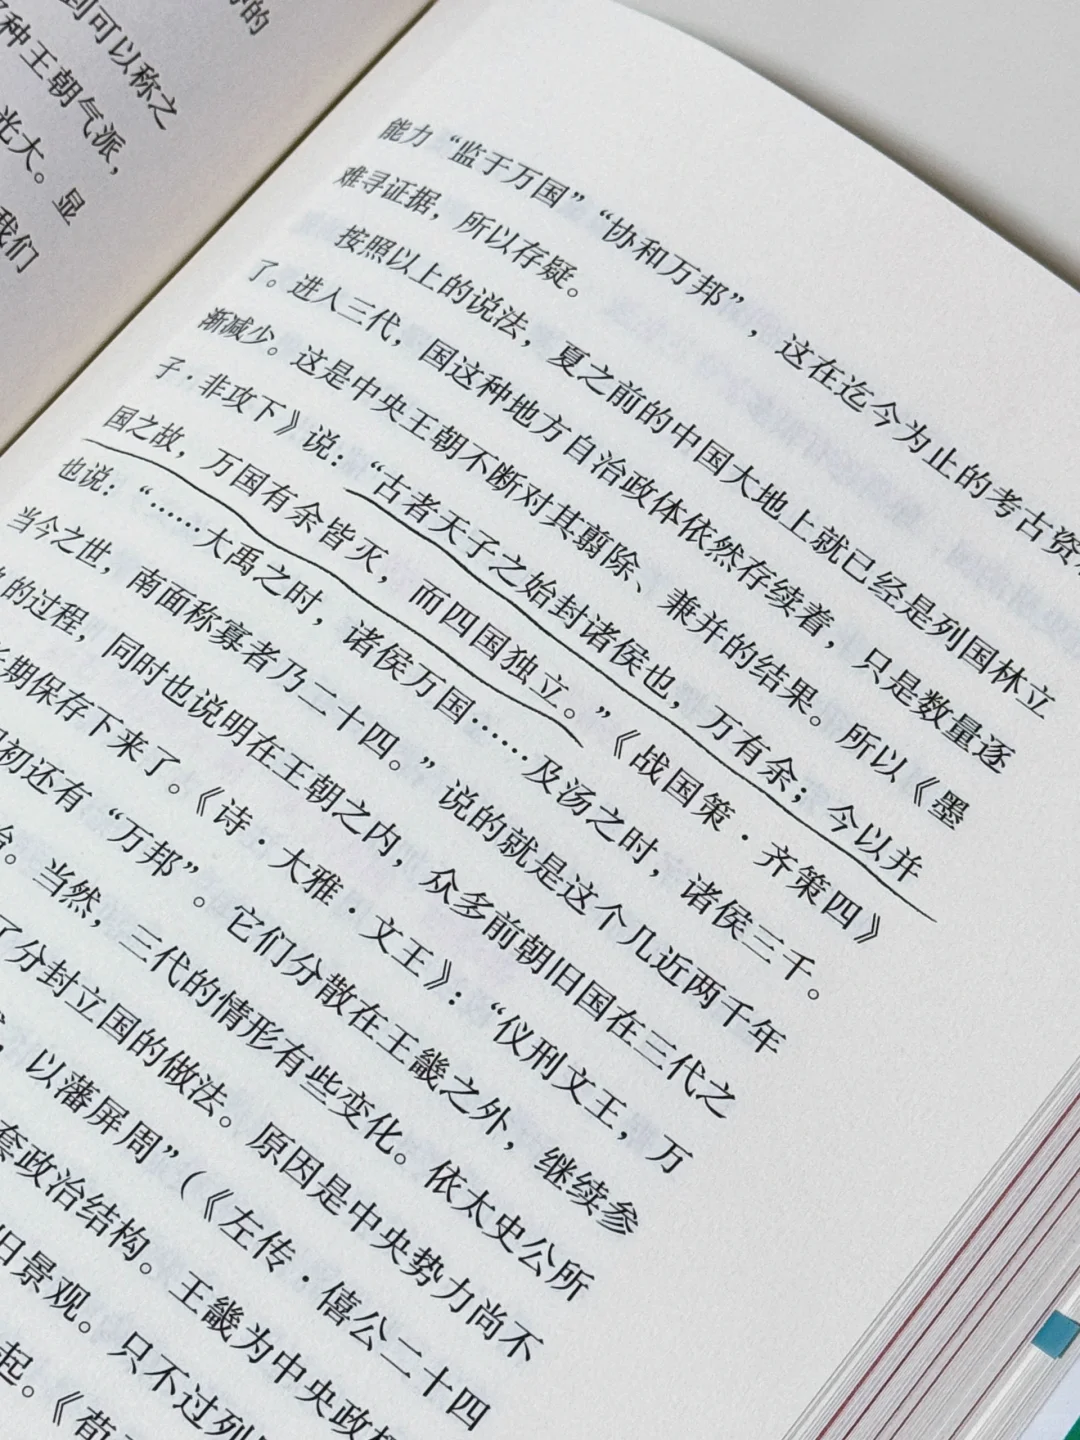 的
到可以称之
种王朝气派，
光大。显
我们
能力“监于万国”“协和万邦”，这在迄今为止的考古资
难寻证据，所以存疑。
按照以上的说法，夏之前的中国大地上就已经是列国林立
了。进入三代，国这种地方自治政体依然存续着，只是数量逐
渐减少。这是中央王朝不断对其翦除、兼并的结果。所以《墨
子·非攻下》说：“古者天子之始封诸侯也，万有余；今以并
国之故，万国有余皆灭，而四国独立。”《战国策·齐策四》
也说：“……大禹之时，诸侯万国……及汤之时，诸侯三千。
当今之世，南面称寡者乃二十四。”说的就是这个几近两千年
的过程，同时也说明在王朝之内，众多前朝旧国在三代之
期保存下来了。《诗·大雅·文王》：“仪刑文王，万
初还有“万邦”。它们分散在王畿之外，继续参
。当然，三代的情形有些变化。依太史公所
了分封立国的做法。原因是中央势力尚不
，以藩屏周”（《左传·僖公二十四
套政治结构。王畿为中央政
旧景观。只不过列
起。《荀